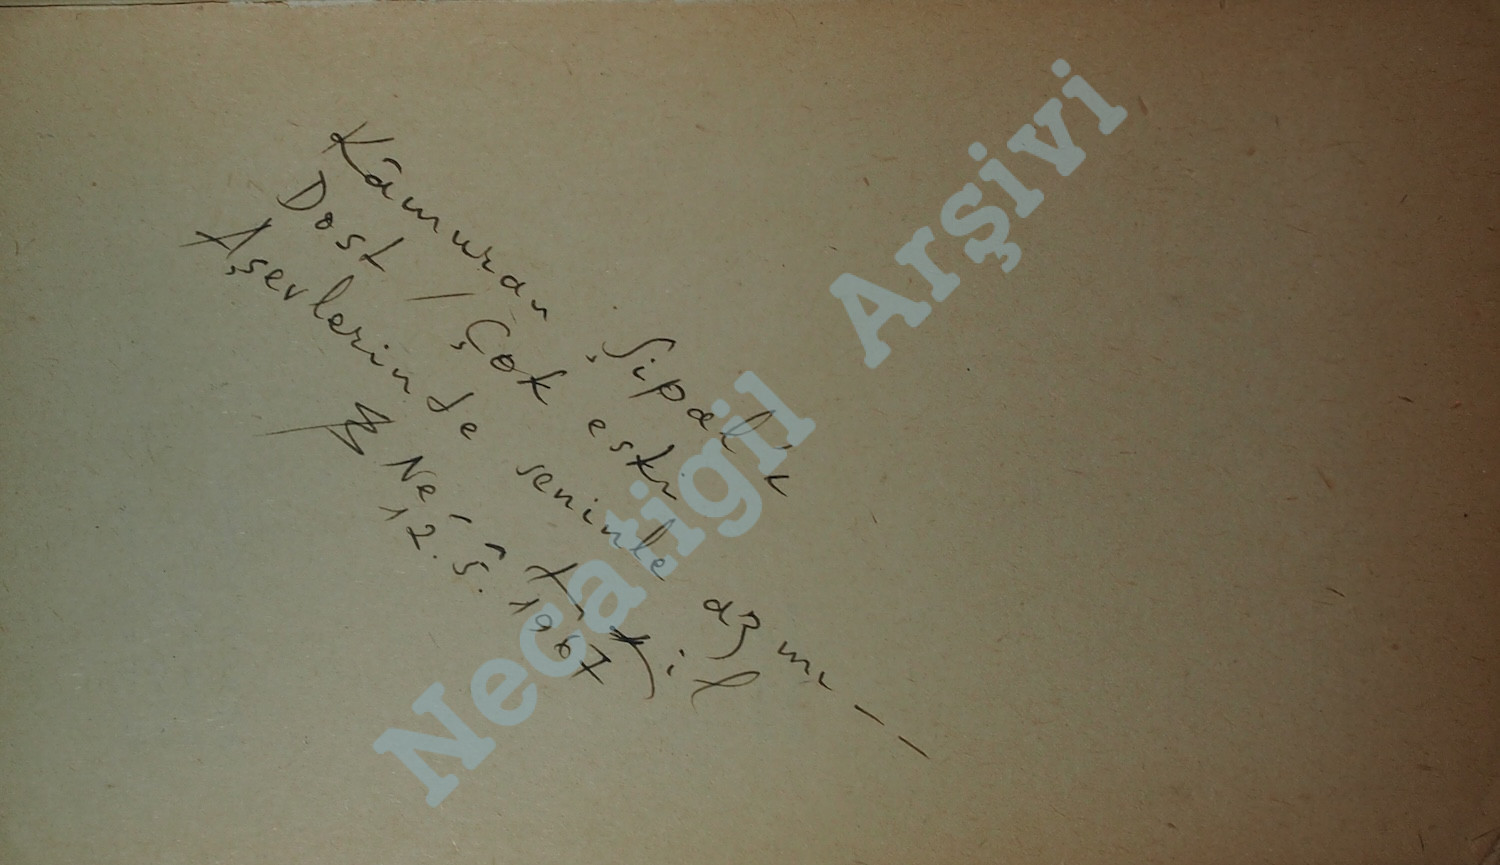 Kâmuran Şipal'ı
Dost / Çok eski
Aşevlerinde seninle az mı - -
B Necatigil
12.5.1967
Necatigil Arşivi